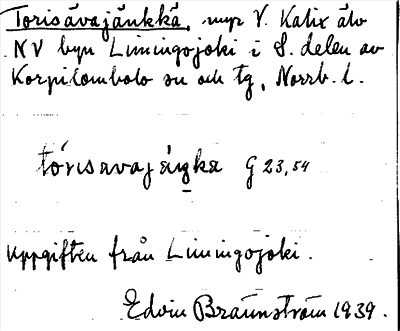 Torisävajänkkä, myr V. Kalix älv
NV byn Liiningojoki i S. delen av
Korpilombolo sn och tg, Norrb. l.
tórisavajäŋkæ G 23,54
Uppgiften från Liiningojoki.
Edvin Brännström 1939.